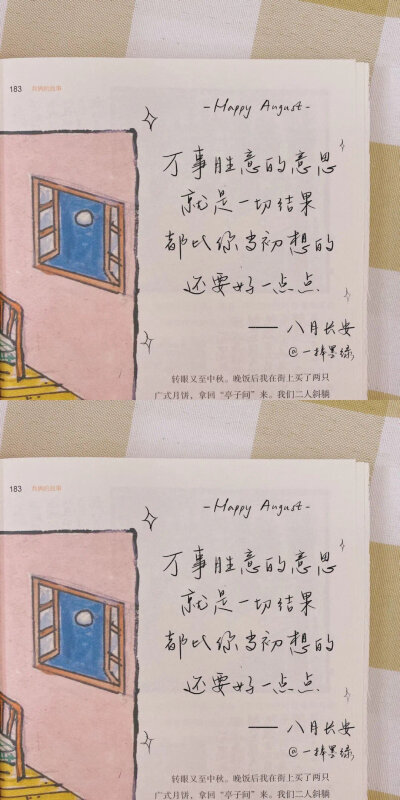 183 我俩的故事
-Happy August-
万事胜意的意思
就是一切结果
都比你当初想的
还要好一点点.
—— 八月长安
@一梓墨绿
转眼又至中秋。晚饭后我在街上买了两只
广式月饼，拿回“亭子间”来。我们二人斜躺
183 我俩的故事
-Happy August-
万事胜意的意思
就是一切结果
都比你当初想的
还要好一点点.
—— 八月长安
@一梓墨绿
转眼又至中秋。晚饭后我在街上买了两只
广式月饼，拿回“亭子间”来。我们二人斜躺